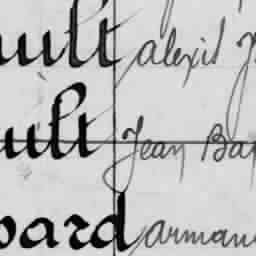 ult alexis J
ult Jean Bap
pard arman